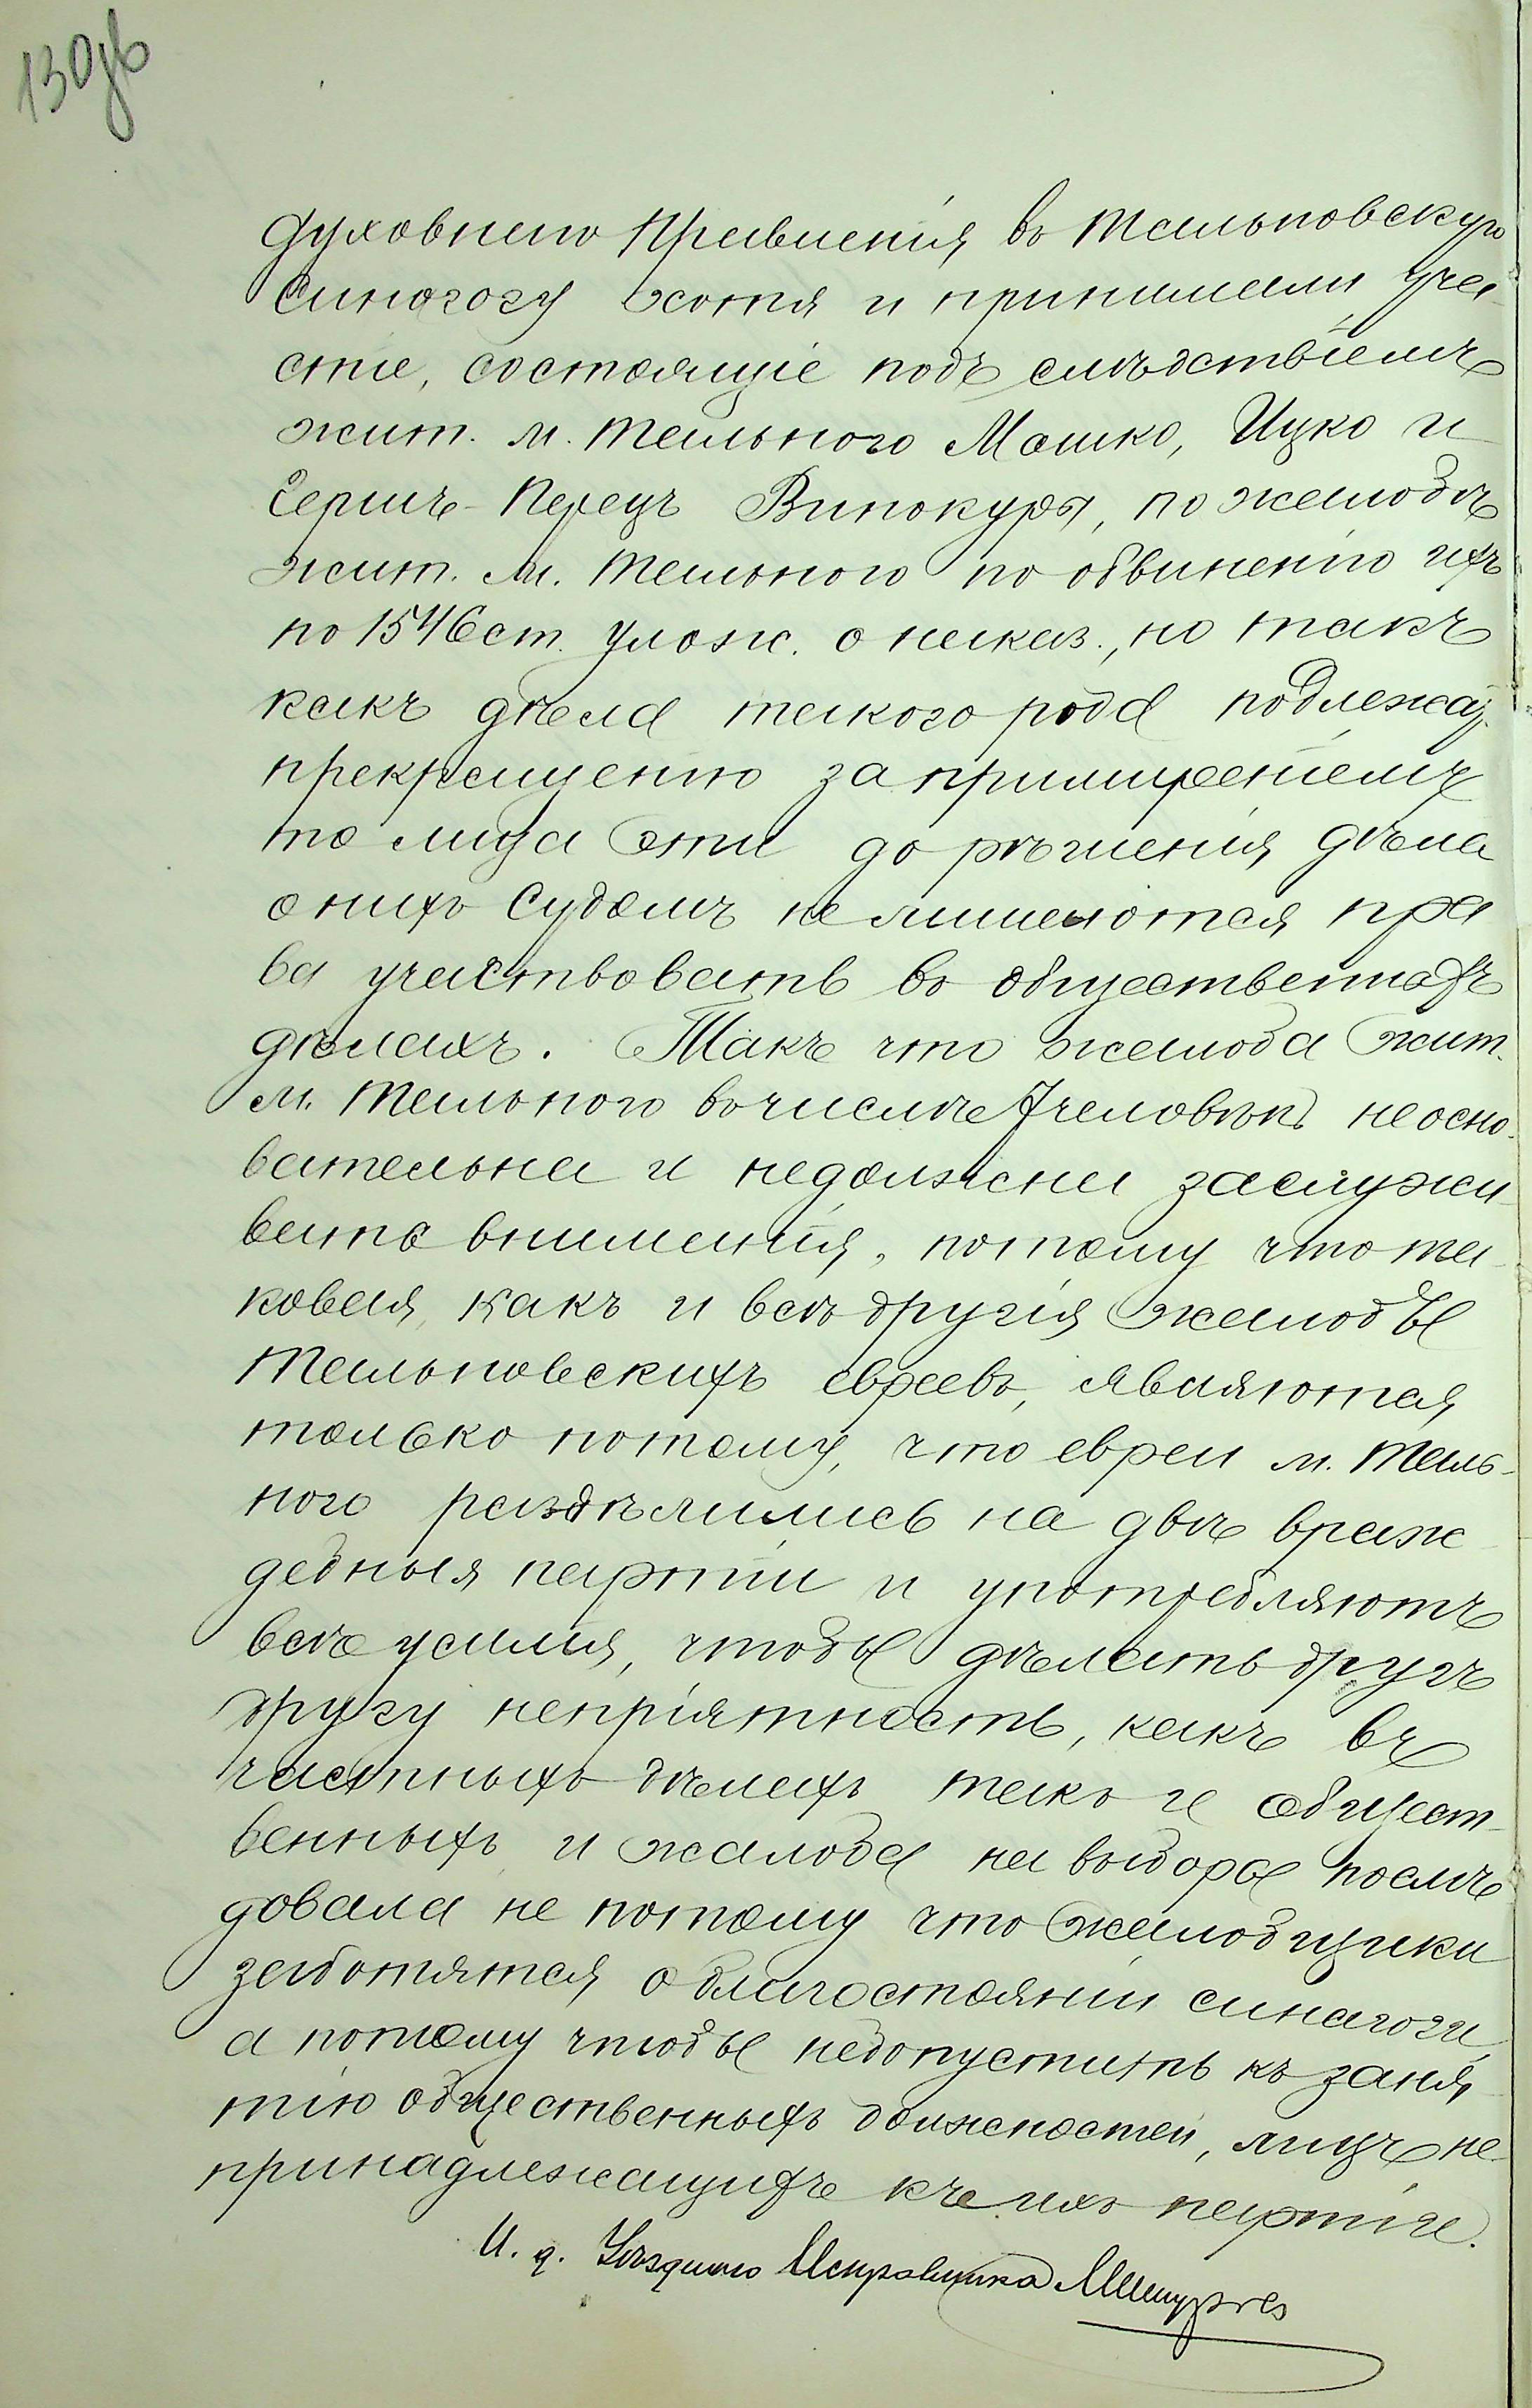 130об
духовнаго Правленія въ Тальновскую
синогогу хотя и принимали уча-
стіе, состоящіе подъ слѣдствіемъ
жит. м. Тального Мошко, Ицко и
Гершъ-Перецъ Винокуры, по жалобѣ
жит. м. Тального по обвиненію ихъ
по 1546 ст. улож. о наказ., но такъ
какъ дѣла такого рода подлежат
прекращенію за примиреніемъ
то лица эти до рѣшенія дѣла
о нихъ Судомъ не лишаются пра
ва участвовать въ общественныхъ
дѣлахъ. Такъ что жалоба жит.
м. Тального въ числѣ 7 человѣкъ неосно-
вательна и недолжна заслужи-
вать вниманія, потому что та-
ковая, какъ и всѣ другія жалобы
Тальновскихъ евреевъ, являются
только потому, что евреи м. Таль-
ного раздѣлились на двѣ враж-
дебныя партіи и употребляютъ
всѣ усилія, чтобы дѣлать другъ
другу непріятность, какъ въ
частныхъ дѣлахъ такъ и общест-
венныхъ и жалоба на выборы послѣ
довала не потому что жалобщики
заботятся о благостояніи синагоги,
а потому чтобы недопустить къ заня
тію общественныхъ должностей, лицъ не-
принадлежащихъ къ ихъ партіи.
И. д. Уѣзднаго Исправника